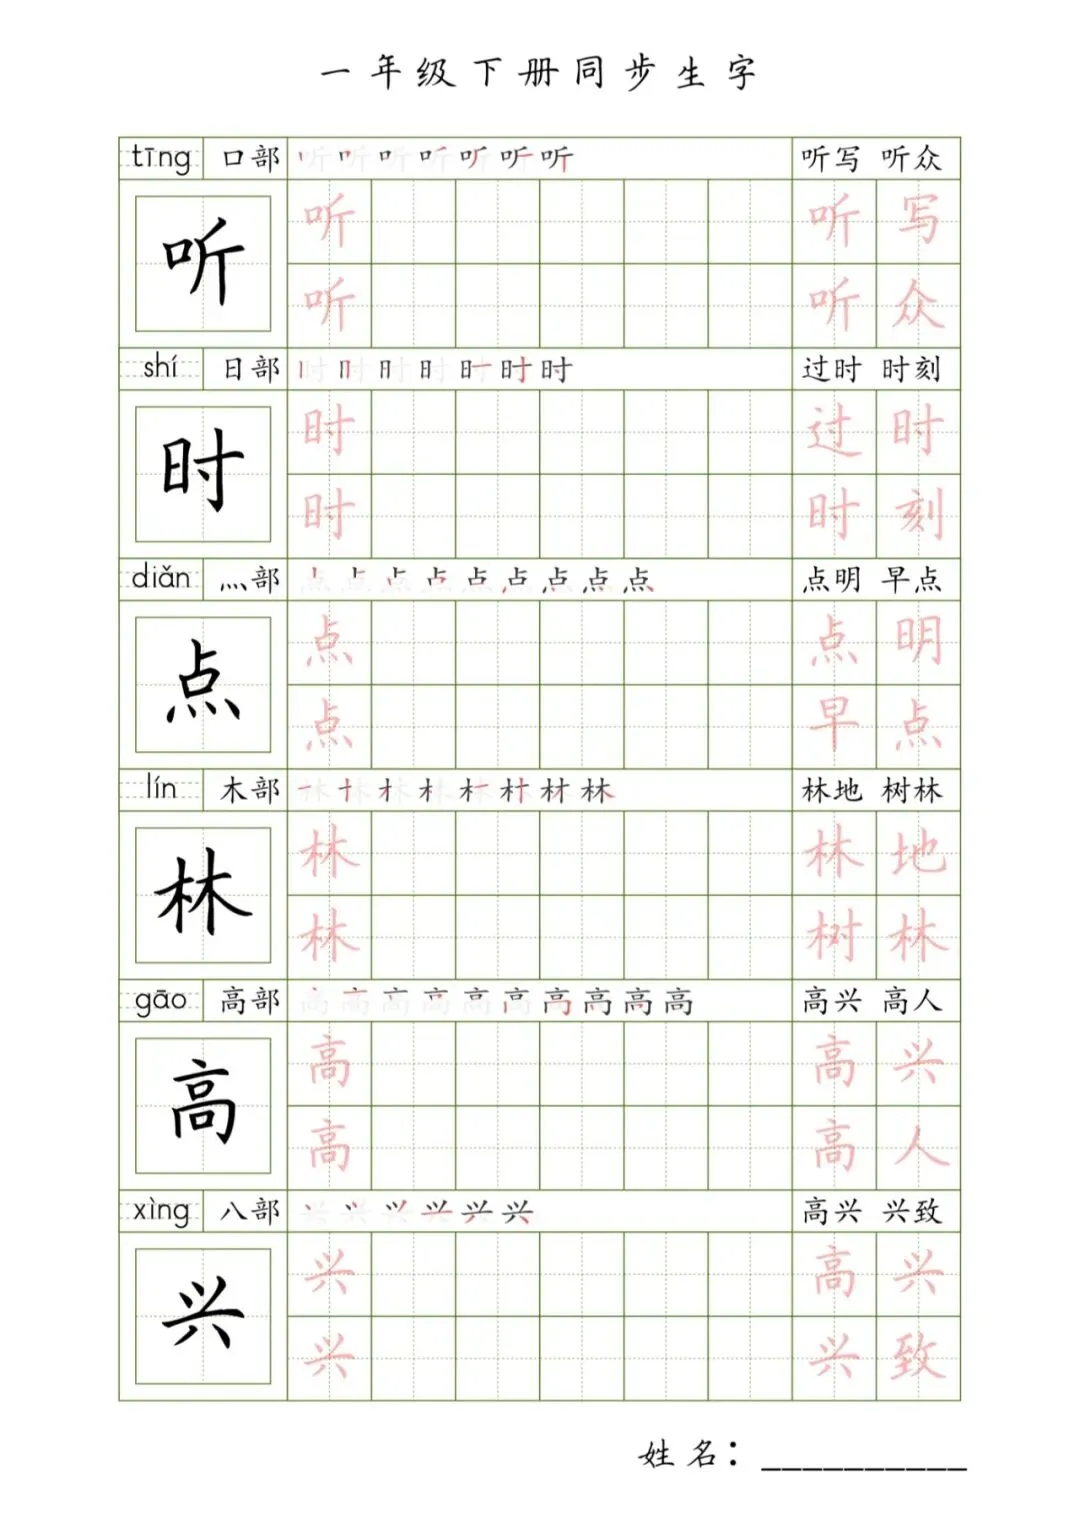 一年级下册同步生字
tīng 口部 听听听听听听听 听写 听众
听 听 听写
听 听众
shí 日部 时时时时时时时 过时 时刻
时 时 过时
时 时刻
diǎn 灬部 点点点点点点点点点 点明 早点
点 点 点明
点 早点
lín 木部 林林林林林林林林 林地 树林
林 林 林地
林 树林
gāo 高部 高高高高高高高高高高 高兴 高人
高 高 高兴
高 高人
xìng 八部 兴兴兴兴兴兴 高兴 兴致
兴 兴 高兴
兴 兴致
姓名：__________